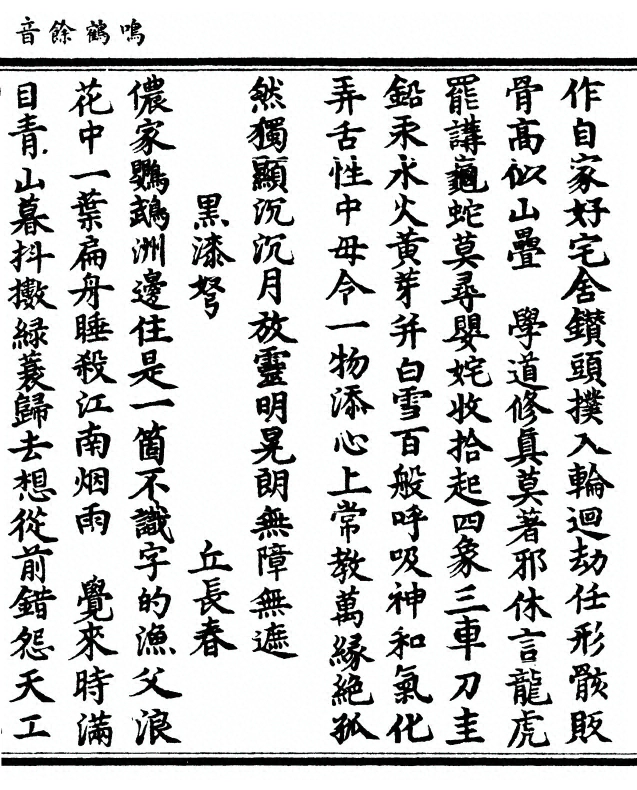 鳴鶴餘音
作自家好宅舍鑚頭撲入輪迴劫任形骸敗
骨高似山疊　學道修真莫著邪休言龍虎
罷講龜蛇莫尋嬰姹收拾起四象三車刀圭
鉛汞水火黃芽并白雪百般呼吸神和氣化
弄舌性中毋令一物添心上常教萬緣絕孤
然獨顯沉沉月放靈明晃朗無障無遮
黑漆弩　丘長春
儂家鸚鵡洲邊住是一箇不識字的漁父浪
花中一葉扁舟睡殺江南烟雨　覺來時滿
目青山暮抖擻緑蓑歸去想從前錯怨天工